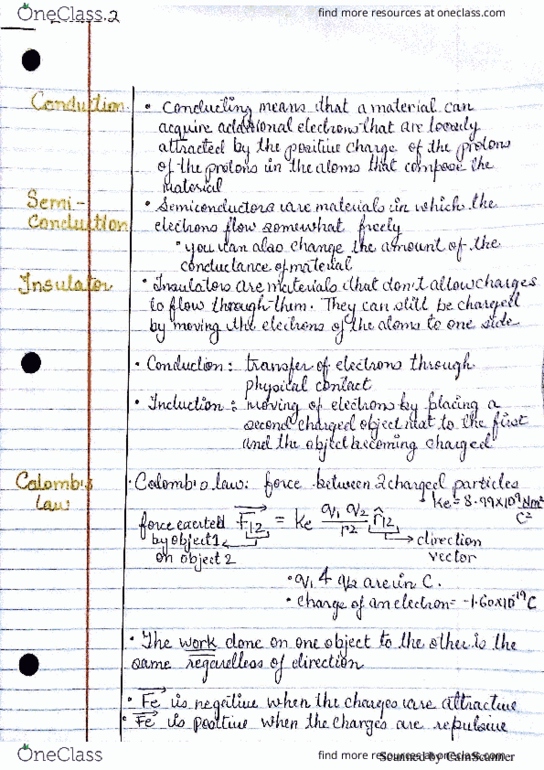 OneClass.2
find more resources at oneclass.com
Conduction
• Conducting means that a material can
acquire additional electrons that are loosely
attracted by the positive charge of the protons
of the protons in the atoms that compose the
material
Semi-
Conduction
• Semiconductors are materials in which the
electrons flow somewhat freely
• you can also change the amount of the
conductance of material
Insulator
• Insulators are materials that don't allow charges
to flow through them. They can still be charged
by moving the electrons of the atoms to one side
• Conduction: transfer of electrons through
physical contact
• Induction: moving of electrons by placing a
second charged object next to the first
and the object becoming charged
Colomb's
Law
• Colomb's law: force between 2 charged particles
• ke = 8.99x10⁹ Nm²/C²
force exerted
by object 1
on object 2
F₁₂ = ke q₁ q₂/r² r̂₁₂
direction
vector
• q₁ & q₂ are in C.
• charge of an electron = -1.60x10⁻¹⁹C
• The work done on one object to the other is the
same regardless of direction
• Fe is negitive when the charges are attractive
• Fe is positive when the charges are repulsive
OneClass
find more resources at oneclass.com
Scanned by CamScanner